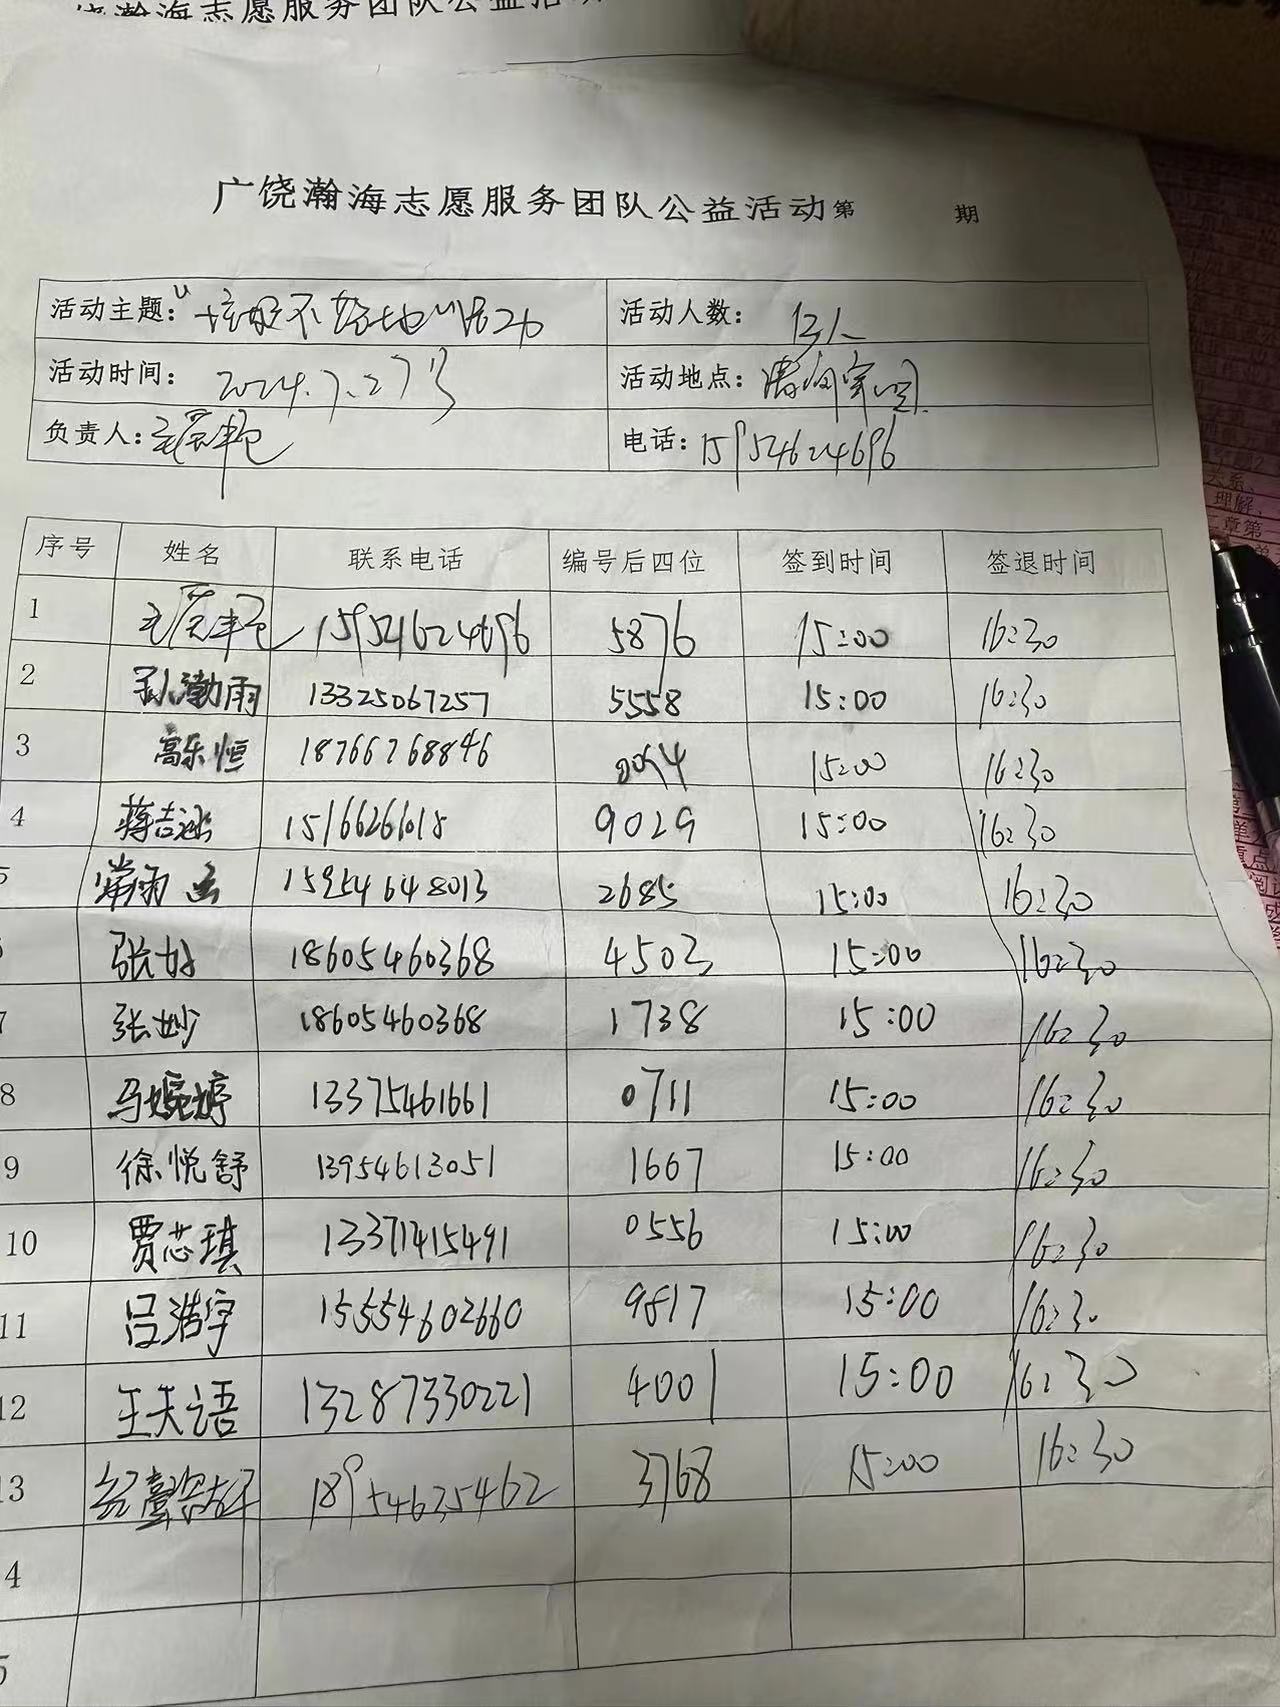 广饶瀚海志愿服务团队公益活动第 期
活动主题: 活动人数: 13人
活动时间: 2024.7.27号 活动地点:
负责人: 电话: 15954624696
序号 姓名 联系电话 编号后四位 签到时间 签退时间
1 15954624696 5876 15:00 16:30
2 孙渤雨 13325067257 5558 15:00 16:30
3 高乐恒 18766768846 15:00 16:30
4 蒋吉涵 15166266018 9029 15:00 16:30
5 常雨 15954648013 2685 15:00 16:30
张好 18605460368 4503 15:00 16:30
7 张妙 18605460368 1738 15:00 16:30
8 马婉婷 13375461661 0711 15:00 16:30
9 徐悦舒 13954613051 1667 15:00 16:30
10 贾芯琪 13371415491 0556 15:00 16:30
11 吕浩宇 15554602660 9817 15:00 16:30
12 王天语 13287330221 4001 15:00 16:30
13 18954635462 3768 15:00 16:30
4
5